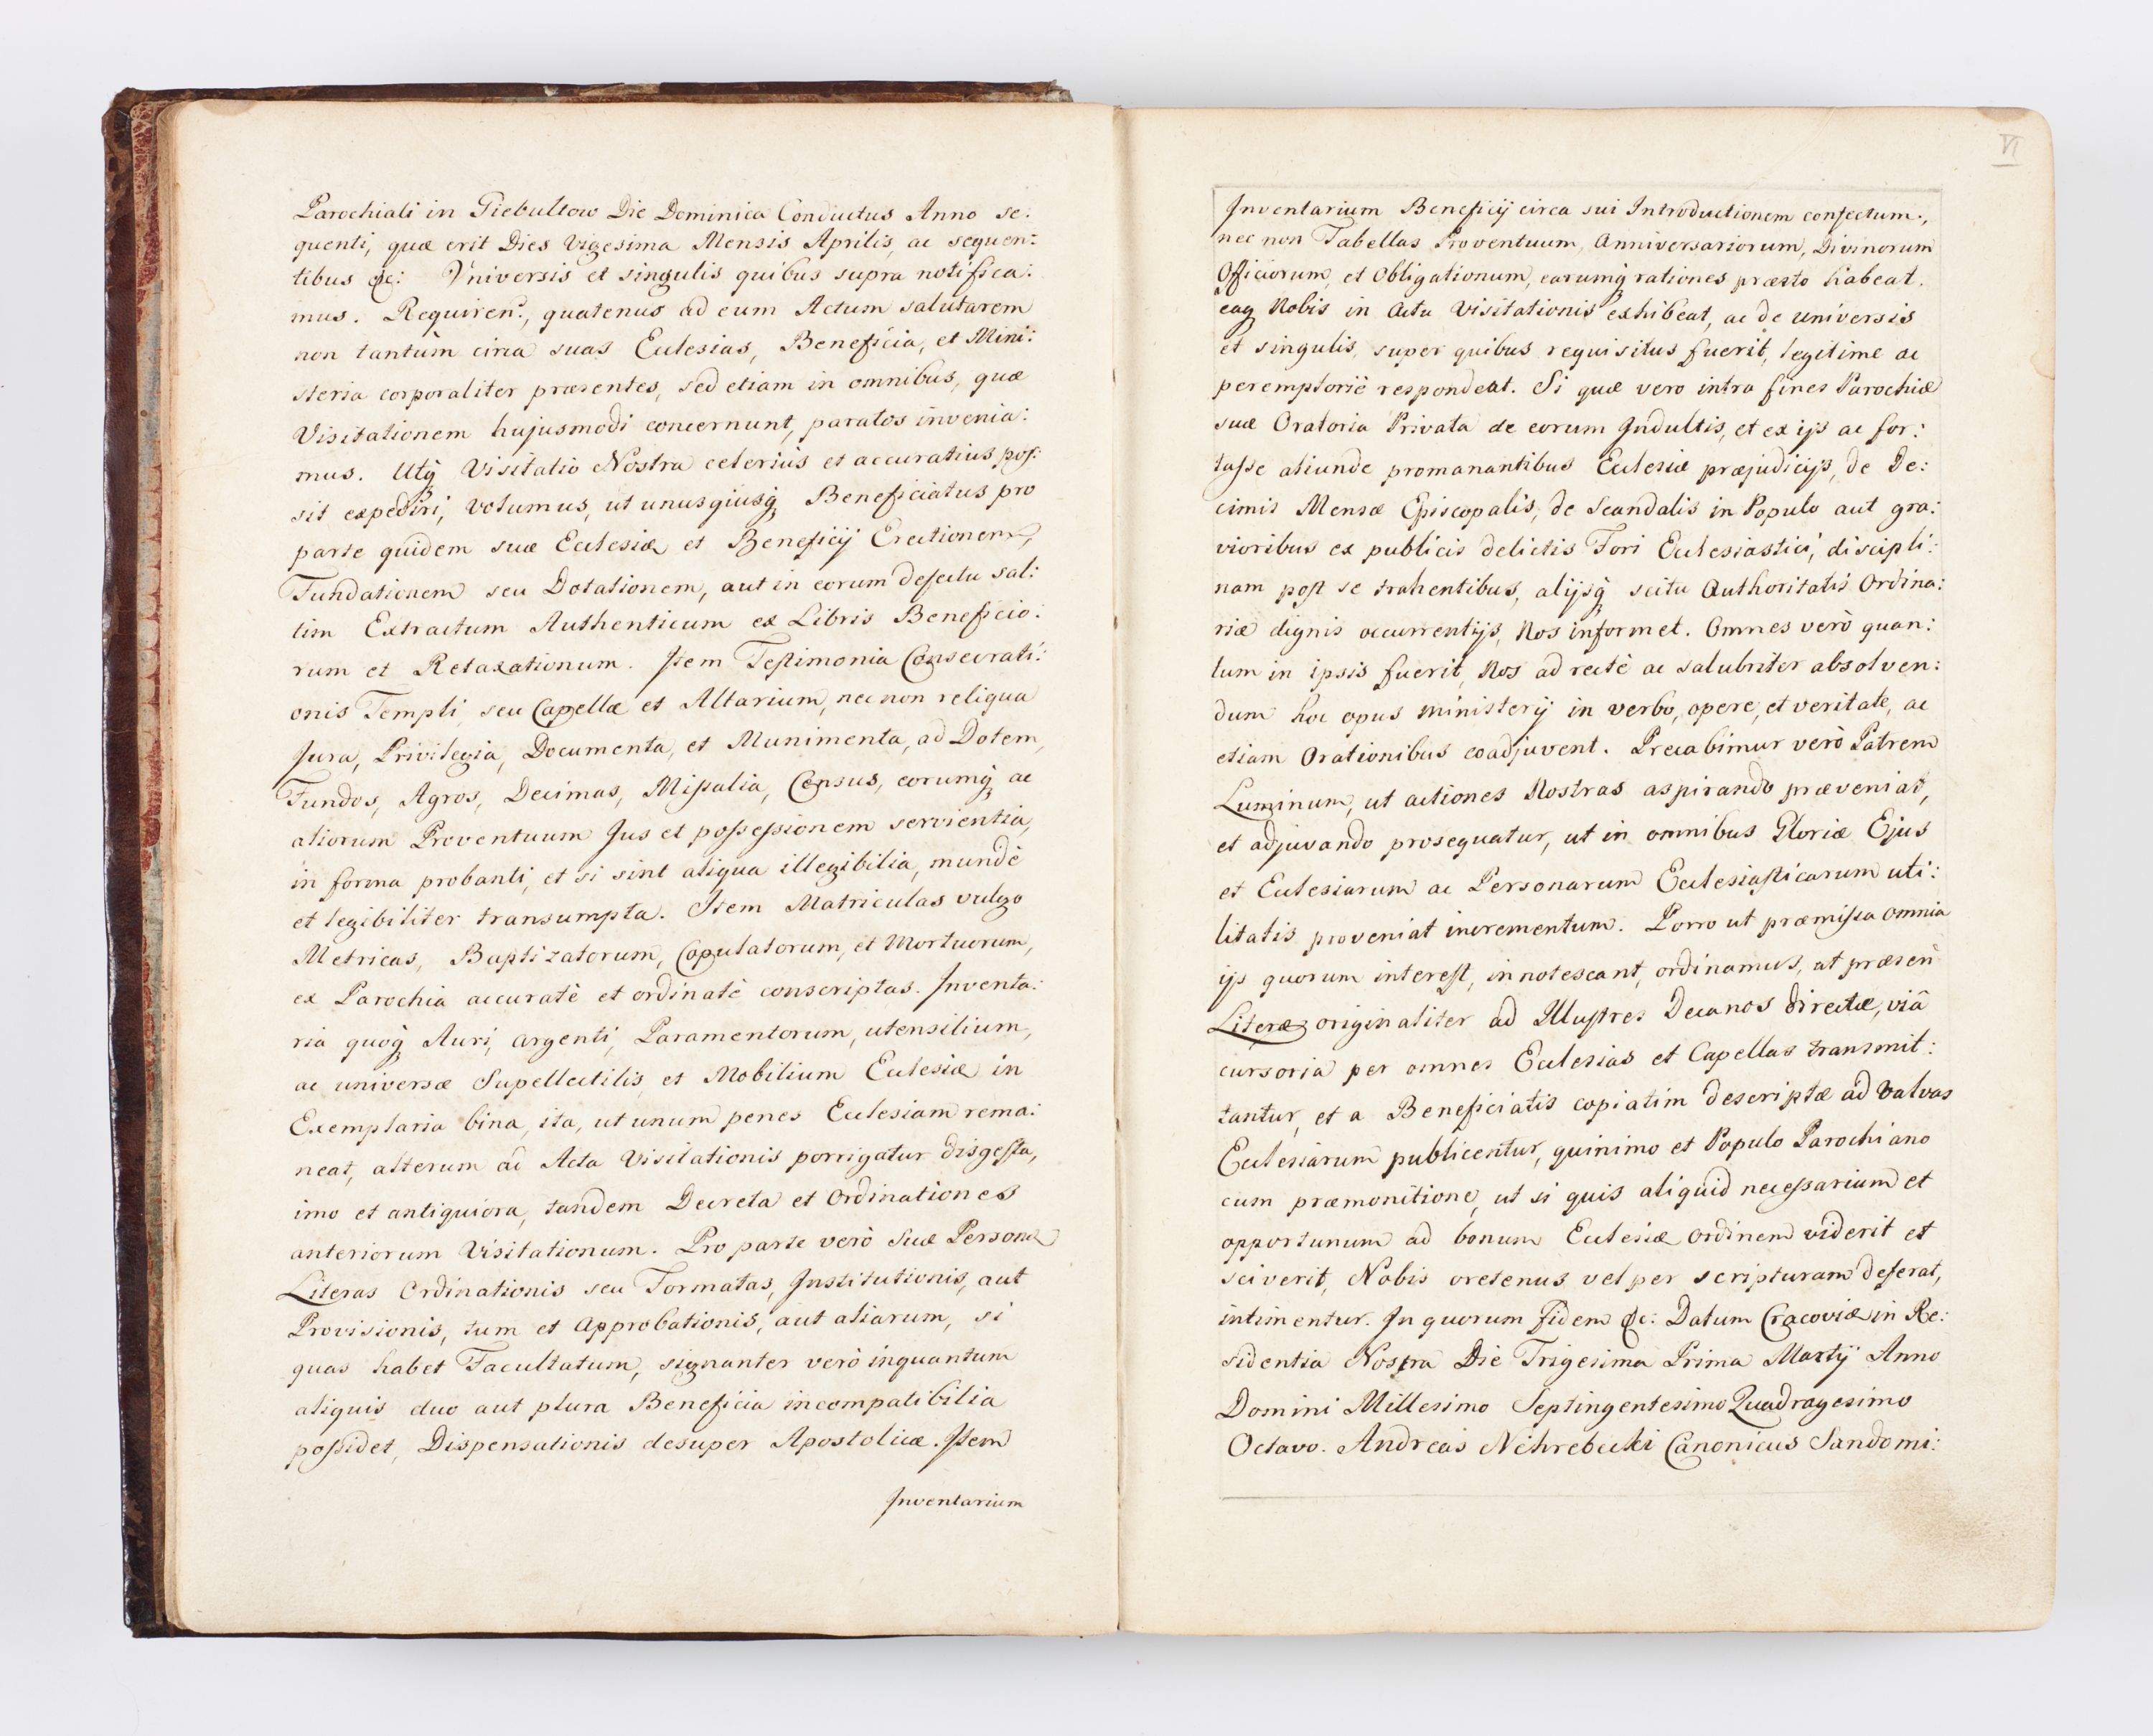 Parochiali in Giebultow Die Dominica Conductus Anno se:
quenti, quæ erit Dies Vigesima Mensis Aprilis, ac sequen:
tibus &c: Vniversis et singulis quibus supra notifica:
mus. Requiren:, quatenus ad eum Actum salutarem
non tantùm circa suas Ecclesias, Beneficia, et Mini:
steria corporaliter præsentes, sed etiam in omnibus, quæ
Visitationem hujusmodi concernunt, paratos invenia:
mus. Utq; Visitatio Nostra celeriùs et accuratius pos:
sit expediri, volumus, ut unusquisq; Beneficiatus pro
parte quidem suæ Ecclesiæ et Beneficij Erectionem,
Fundationem seu Dotationem, aut in eorum defectu sal:
tim Extractum Authenticum ex Libris Beneficio:
rum et Retaxationum. Item Testimonia Consecrati:
onis Templi seu Capellæ et Altarium, nec non reliqua
Jura, Privilegia, Documenta, et Munimenta, ad Dotem,
Fundos, Agros, Decimas, Missalia, Census, eorumq; ac
aliorum Proventuum Jus et possessionem servientia,
in forma probanti, et si sint aliqua illegibilia, mundè
et legibiliter transumpta. Item Matriculas vulgo
Metricas, Baptizatorum, Copulatorum, et Mortuorum,
ex Parochia accuratè et ordinatè conscriptas. Inventa:
ria quoq; Auri, Argenti, Paramentorum, utensilium,
ac universæ Supellectilis, et Mobilium Ecclesiæ in
Exemplaria bina, ita, ut unum penes Ecclesiam rema:
neat, alterum ad Acta Visitationis porrigatur disgesta,
imo et antiquiora, tandem Decreta et Ordinationes
anteriorum Visitationum. Pro parte verò Suæ Personæ
Literas Ordinationis seu Formatas, Institutionis, aut
Provisionis, tum et Approbationis, aut aliarum, si
quas habet Facultatum, signanter verò inquantum
aliquis duo aut plura Beneficia incompatibilia
possidet, Dispensationis desuper Apostolicæ. Item
Inventarium
VI
Inventarium Beneficij circa sui Introductionem confectum,
nec non Tabellas Proventuum, Anniversariorum, Divinorum
Officiorum, et Obligationum, earumq; rationes præsto habeat.
eaq; Nobis in actu Visitationis exhibeat, ac de universis
et singulis, super quibus requisitus fuerit, legitime ac
peremptoriè respondeat. Si quæ vero intra fines Parochiæ
suæ Oratoria Privata de eorum Indultis, et ex ijs ac for:
tasse aliunde promanantibus Ecclesiæ præjudicijs, de De:
cimis Mensæ Episcopalis, de Scandalis in Populo aut gra:
vioribus ex publicis delictis Fori Ecclesiastici, discipli:
nam post se trahentibus, alijsq; scitu Authoritatis Ordina:
riæ dignis occurrentijs, Nos informet. Omnes verò quan:
tum in ipsis fuerit, Nos ad rectè ac salubriter absolven:
dum hoc opus ministerij in verbo, opere, et veritate, ac
etiam Orationibus coadjuvent. Precabimur verò Patrem
Luminum, ut actiones Nostras aspirando præveniat,
et adjuvando prosequatur, ut in omnibus Gloriæ Ejus
et Ecclesiarum ac Personarum Ecclesiasticarum uti:
litatis proveniat incrementum. Porro ut præmissa omnia
ijs quorum interest, innotescant, ordinamus, ut præsen
Literæ originaliter ad Illustres Decanos directæ, viâ
cursoria per omnes Ecclesias et Capellas transmit:
tantur, et a Beneficiatis copiatim descriptæ ad valvas
Ecclesiarum publicentur, quinimo et Populo Parochiano
cum præmonitione, ut si quis aliquid necessarium et
opportunum ad bonum Ecclesiæ Ordinem viderit et
sciverit, Nobis oretenus vel per scripturam deferat,
intimentur. In quorum fidem &c: Datum Cracoviæ in Re:
sidentia Nostra Die Trigesima Prima Martij Anno
Domini Millesimo Septingentesimo Quadragesimo
Octavo. Andreas Nehrebecki Canonicus Sandomi: